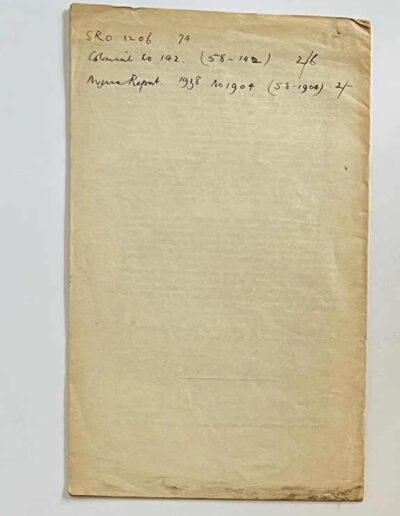 SRO 1206 7d
Colonial No 142. (58-142) 2/6
Nigeria Report. 1938 No 1904 (58-1904) 2/-